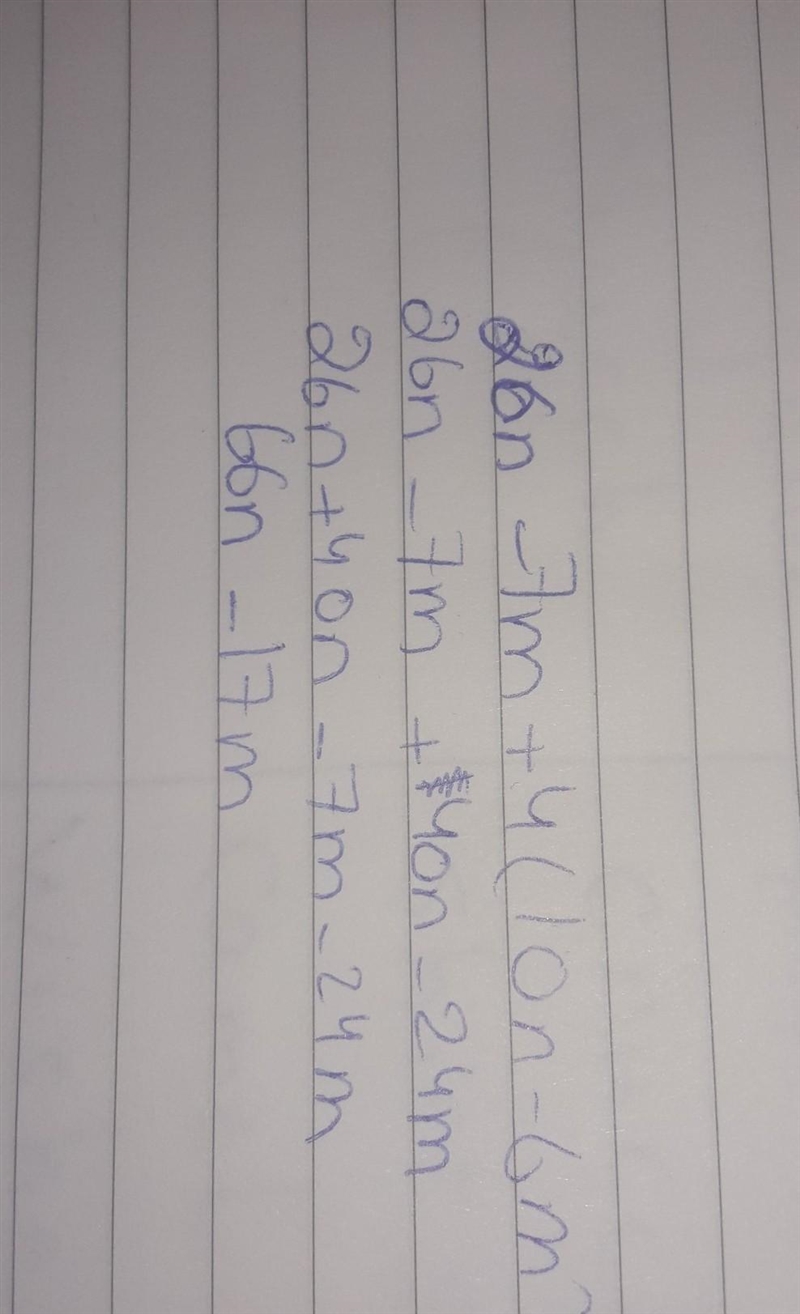 26n - 7m + 4(10n - 6m)
26n - 7m + 40n - 24m
26n + 40n - 7m - 24m
66n - 17m